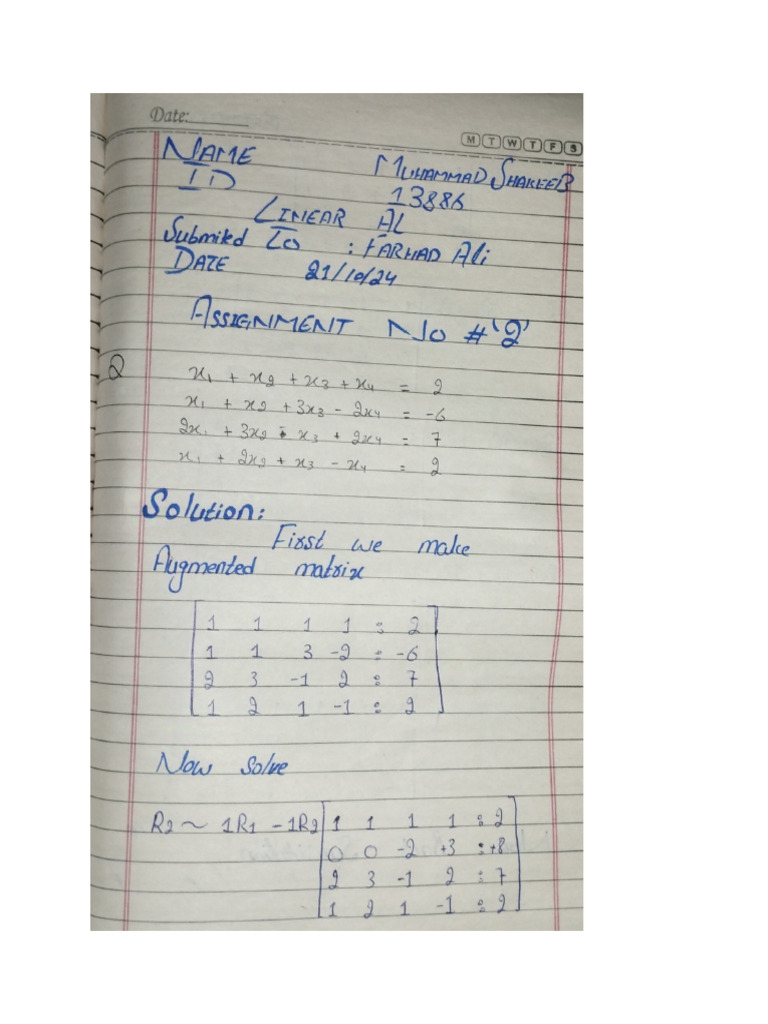 Date:
M T W T F S
NAME MUHAMMAD SHAKEEB
ID 13886
LINEAR AL
Submited To : FARHAD Ali
DATE 21/10/24
ASSIGNMENT No # '2'
Q x1 + x2 + x3 + x4 = 2
x1 + x2 + 3x3 - 2x4 = -6
2x1 + 3x2 - x3 + 2x4 = 7
x1 + 2x2 + x3 - x4 = 2
Solution:
First we make
Augmented matrix
1 1 1 1 : 2
1 1 3 -2 : -6
2 3 -1 2 : 7
1 2 1 -1 : 2
Now solve
R2 ~ 1R1 - 1R2 1 1 1 1 : 2
0 0 -2 +3 : +8
2 3 -1 2 : 7
1 2 1 -1 : 2